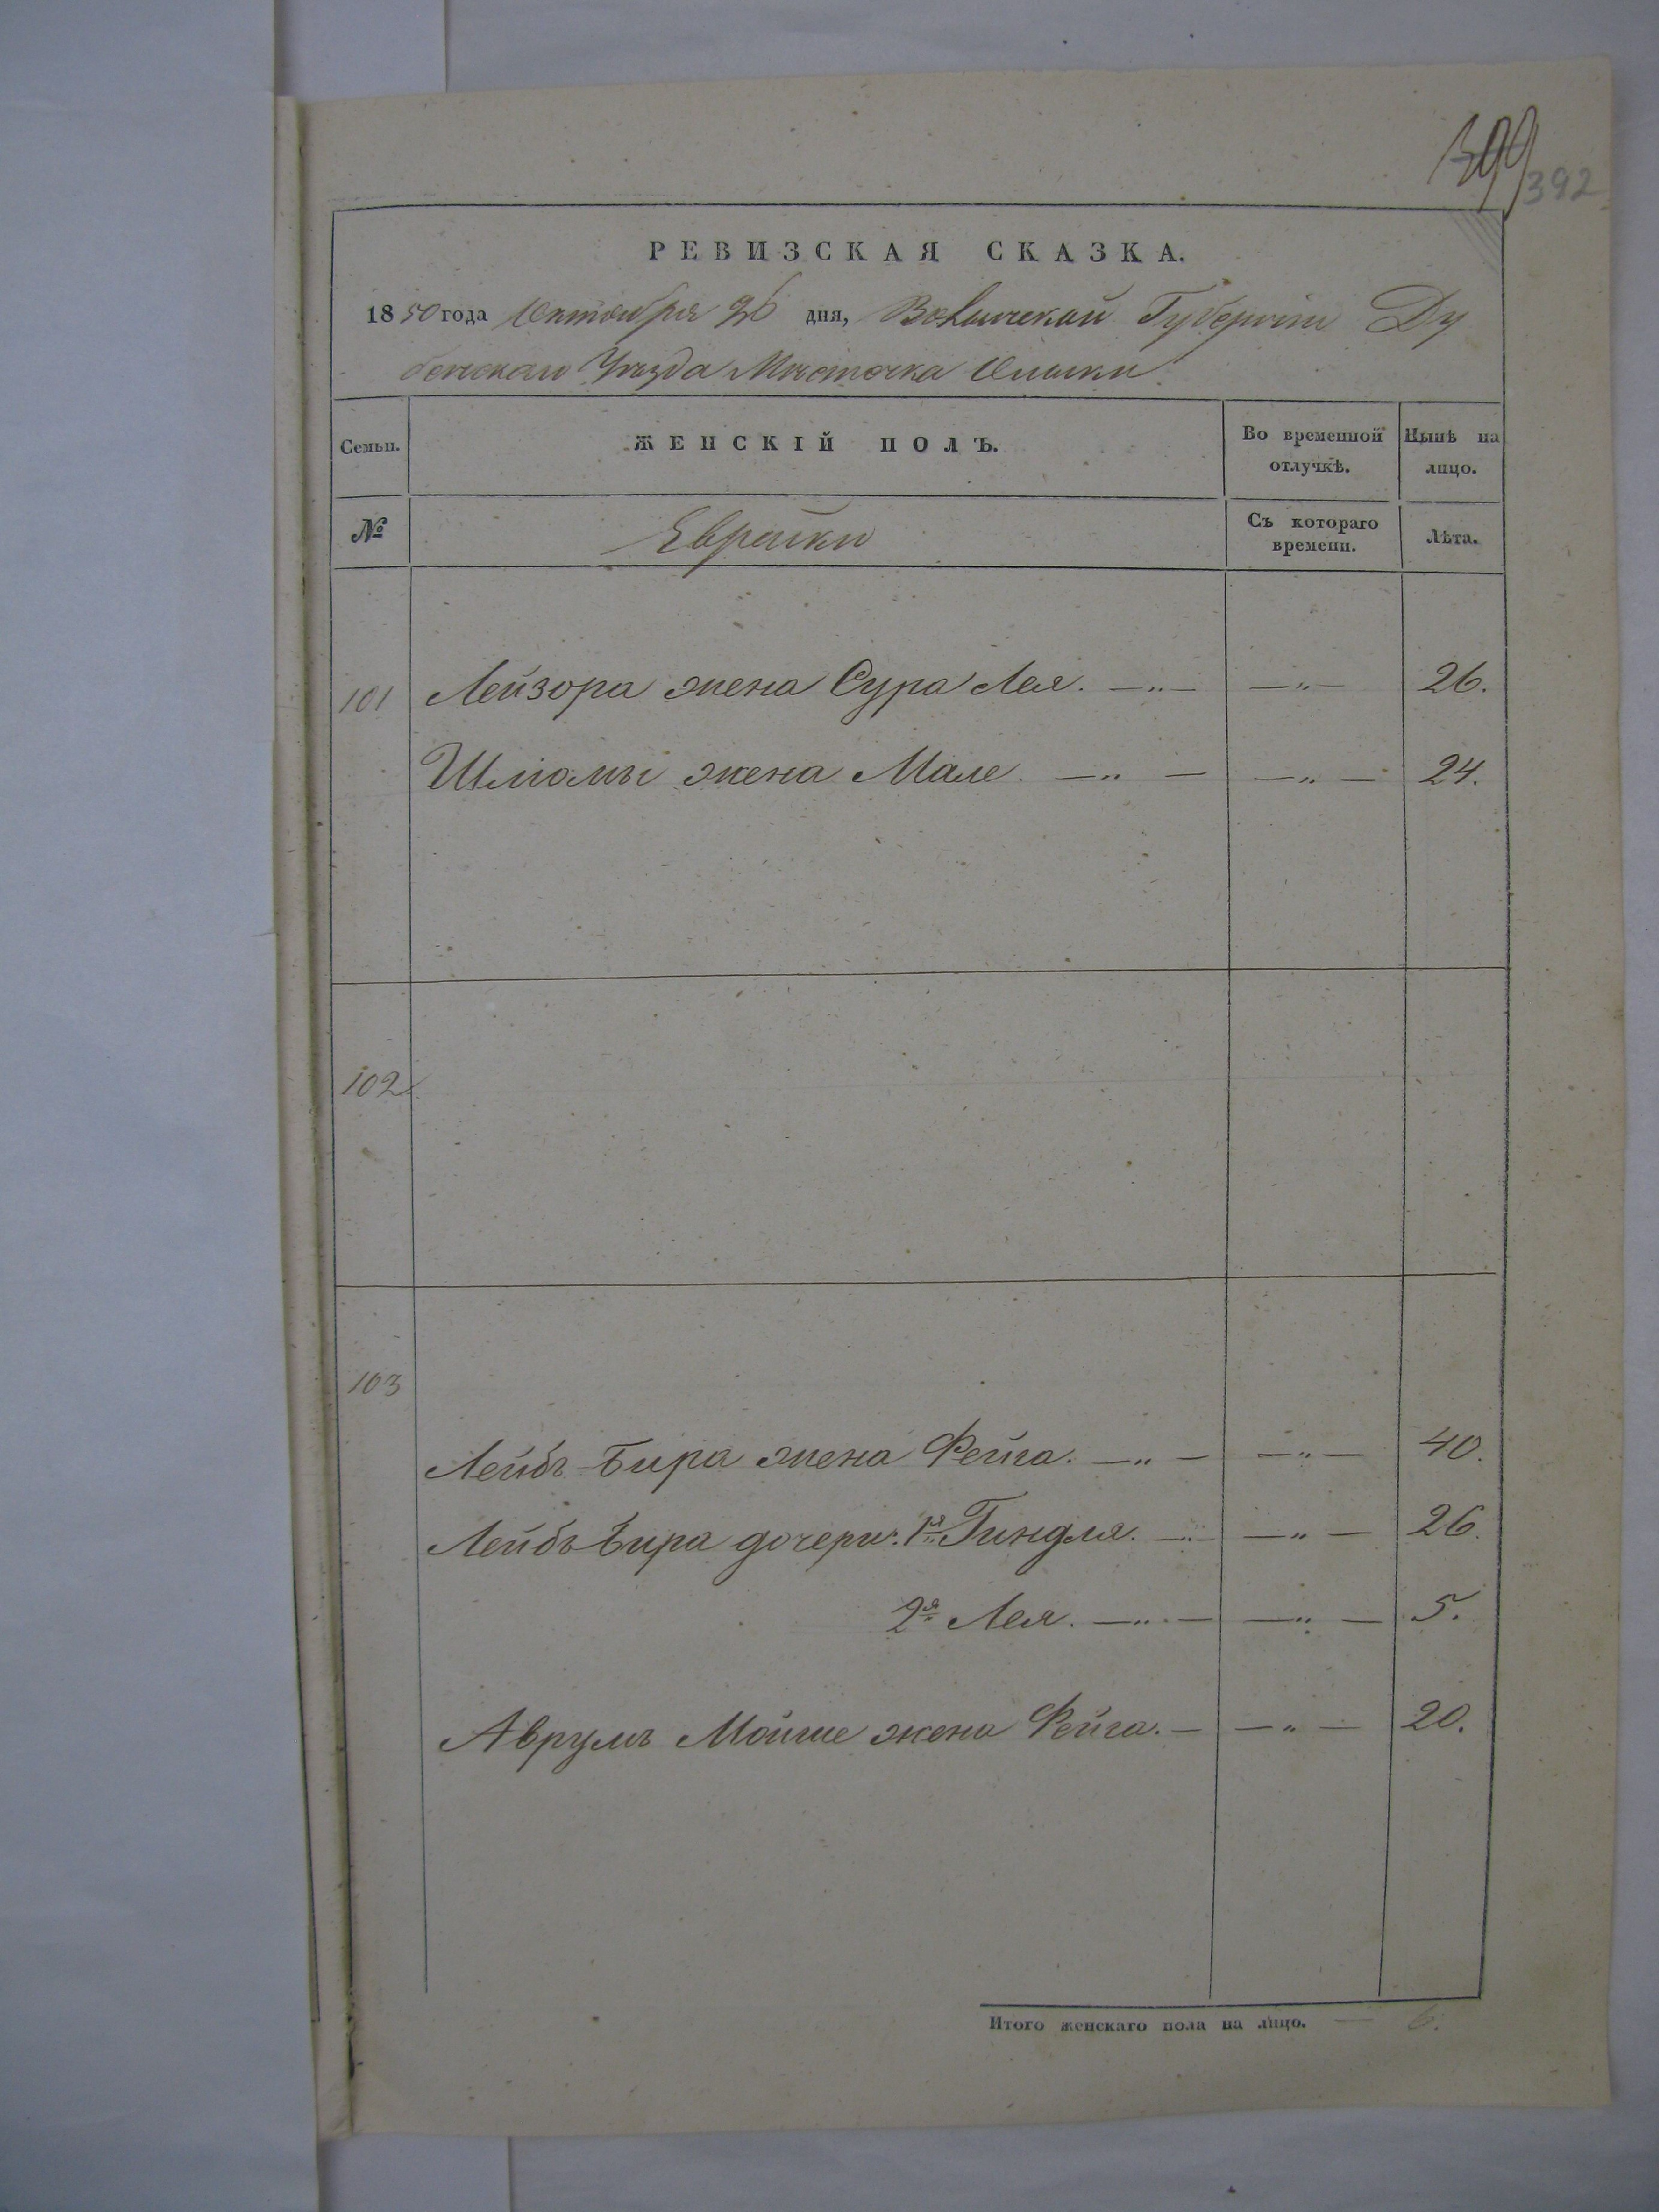 399
392
РЕВИЗСКАЯ СКАЗКА.
1850 года Октября 26 дня, Волынской Губернiи Ду
бенскаго Уѣзда Мѣстечка Олыки
Семьи. ЖЕНСКІЙ ПОЛЪ. Во временной отлучкѣ. Нынѣ на лицо.
№ Еврейки Съ котораго времени. Лѣта.
101 Лейзора жена Сура Лея. —„— —„— 26.
Шліомы жена Мале —„— —„— 24.
102
103
Лейбъ Бира жена Фейга. —„— —„— 40.
Лейбъ Бира дочери: 1я Гиндля. —„— —„— 26.
2я Лея. —„— —„— 5.
Аврумъ Мойше жена Фейга. — —„— 20.
Итого женскаго пола на лицо. — 6.